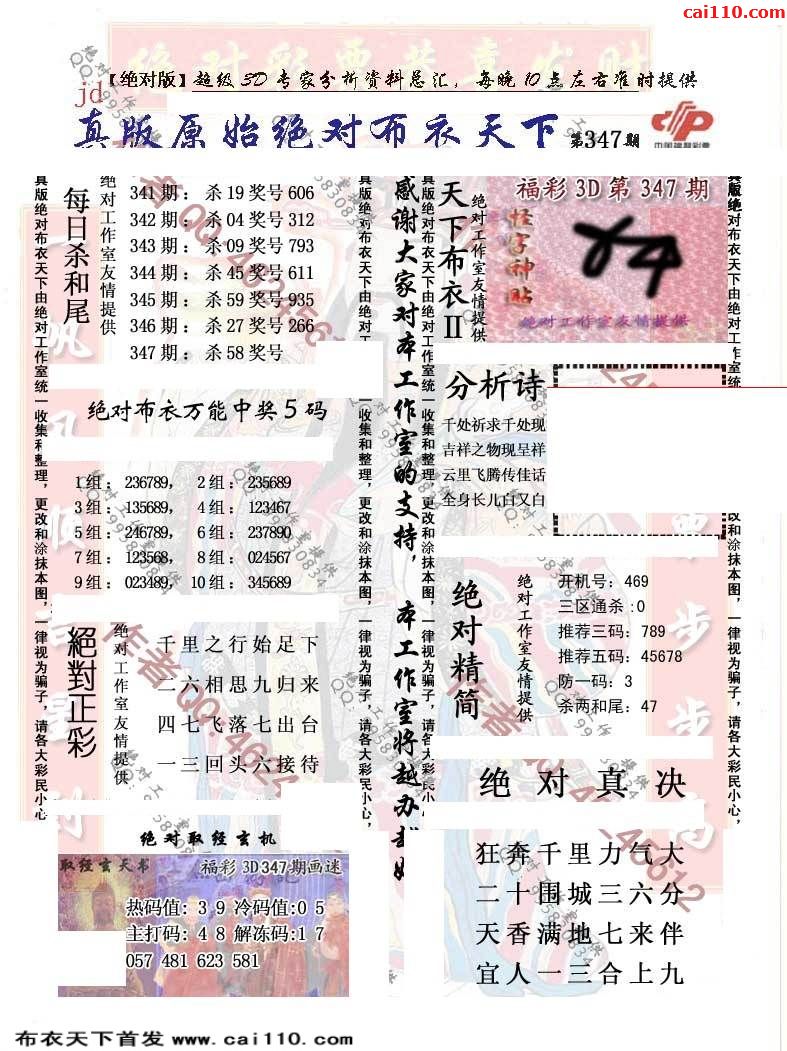 cai110.com
【绝对版】超级3D专家分析资料总汇，每晚10点左右准时提供
jd
真版原始绝对布衣天下 第347期
中国福利彩票
每日杀和尾
绝对工作室友情提供
341期：杀19奖号606
342期：杀04奖号312
343期：杀09奖号793
344期：杀45奖号611
345期：杀59奖号935
346期：杀27奖号266
347期：杀58奖号
绝对布衣万能中奖5码
1组：236789， 2组：235689
3组：135689， 4组：123467
5组：246789， 6组：237890
7组：123568， 8组：024567
9组：023489， 10组：345689
絕對正彩
绝对工作室友情提供
千里之行始足下
二六相思九归来
四七飞落七出台
一三回头六接待
绝对取经玄机
取经玄天书
福彩3D347期画迷
热码值：39冷码值:05
主打码：48解冻码:17
057 481 623 581
感谢大家对本工作室的支持，本工作室将越办越好
天下布衣II
绝对工作室友情提供
福彩3D第347期
怪字神贴
绝对工作室友情提供
分析诗
千处祈求千处现
吉祥之物现呈祥
云里飞腾传佳话
全身长儿白又白
绝对精简
绝对工作室友情提供
开机号：469
三区通杀:0
推荐三码：789
推荐五码：45678
防一码：3
杀两和尾：47
绝对真决
狂奔千里力气大
二十围城三六分
天香满地七来伴
宜人一三合上九
真版绝对布衣天下由绝对工作室统一收集和整理，更改和涂抹本图，一律视为骗子，请各大彩民小心，
布衣天下首发 www.cai110.com